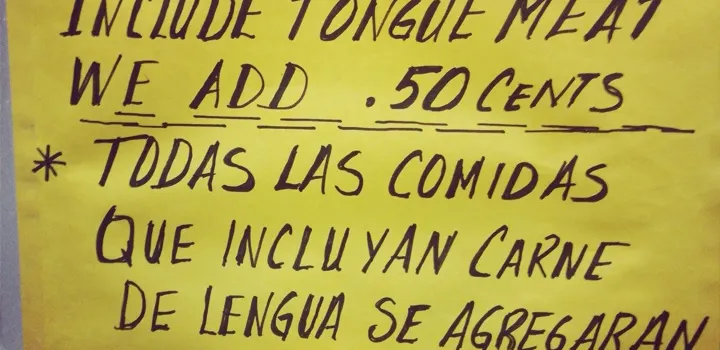 INCLUDE TONGUE MEAT
WE ADD .50 CENTS
* TODAS LAS COMIDAS
QUE INCLUYAN CARNE
DE LENGUA SE AGREGARAN